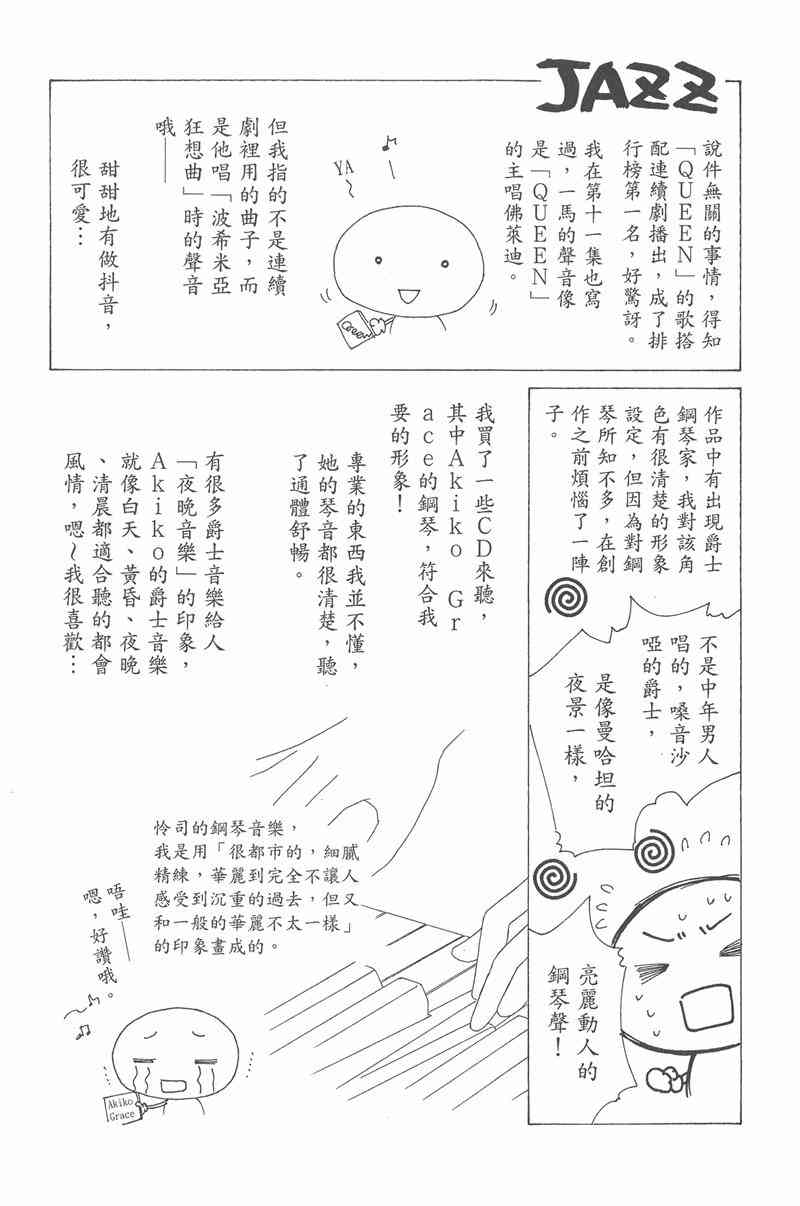 JAZZ
說件無關的事情，得知
「QUEEN」的歌搭
配連續劇播出，成了排
行榜第一名，好驚訝。
我在第十一集也寫
過，一馬的聲音像
是「QUEEN」
的主唱佛萊迪。
YA
～
但我指的不是連續
劇裡用的曲子，而
是他唱「波希米亞
狂想曲」時的聲音
哦——
甜甜地有做抖音，
很可愛…
作品中有出現爵士
鋼琴家，我對該角
色有很清楚的形象
設定，但因為對鋼
琴所知不多，在創
作之前煩惱了一陣
子。
不是中年男人
唱的，嗓音沙
啞的爵士，
是像曼哈坦的
夜景一樣，
亮麗動人的
鋼琴聲！
我買了一些CD來聽，
其中Akiko Gr
ace的鋼琴，符合我
要的形象！
專業的東西我並不懂，
她的琴音都很清楚，聽
了通體舒暢。
有很多爵士音樂給人
「夜晚音樂」的印象，
Akiko的爵士音樂
就像白天、黃昏、夜晚
、清晨都適合聽的都會
風情，嗯～我很喜歡…
怜司的鋼琴音樂，
我是用「很都市的，細膩
精練，華麗到完全不讓人
感受到沉重的過去，但又
和一般的華麗不太一樣」
的印象畫成的。
唔哇——
嗯，好讚哦。
～
Akiko
Grace